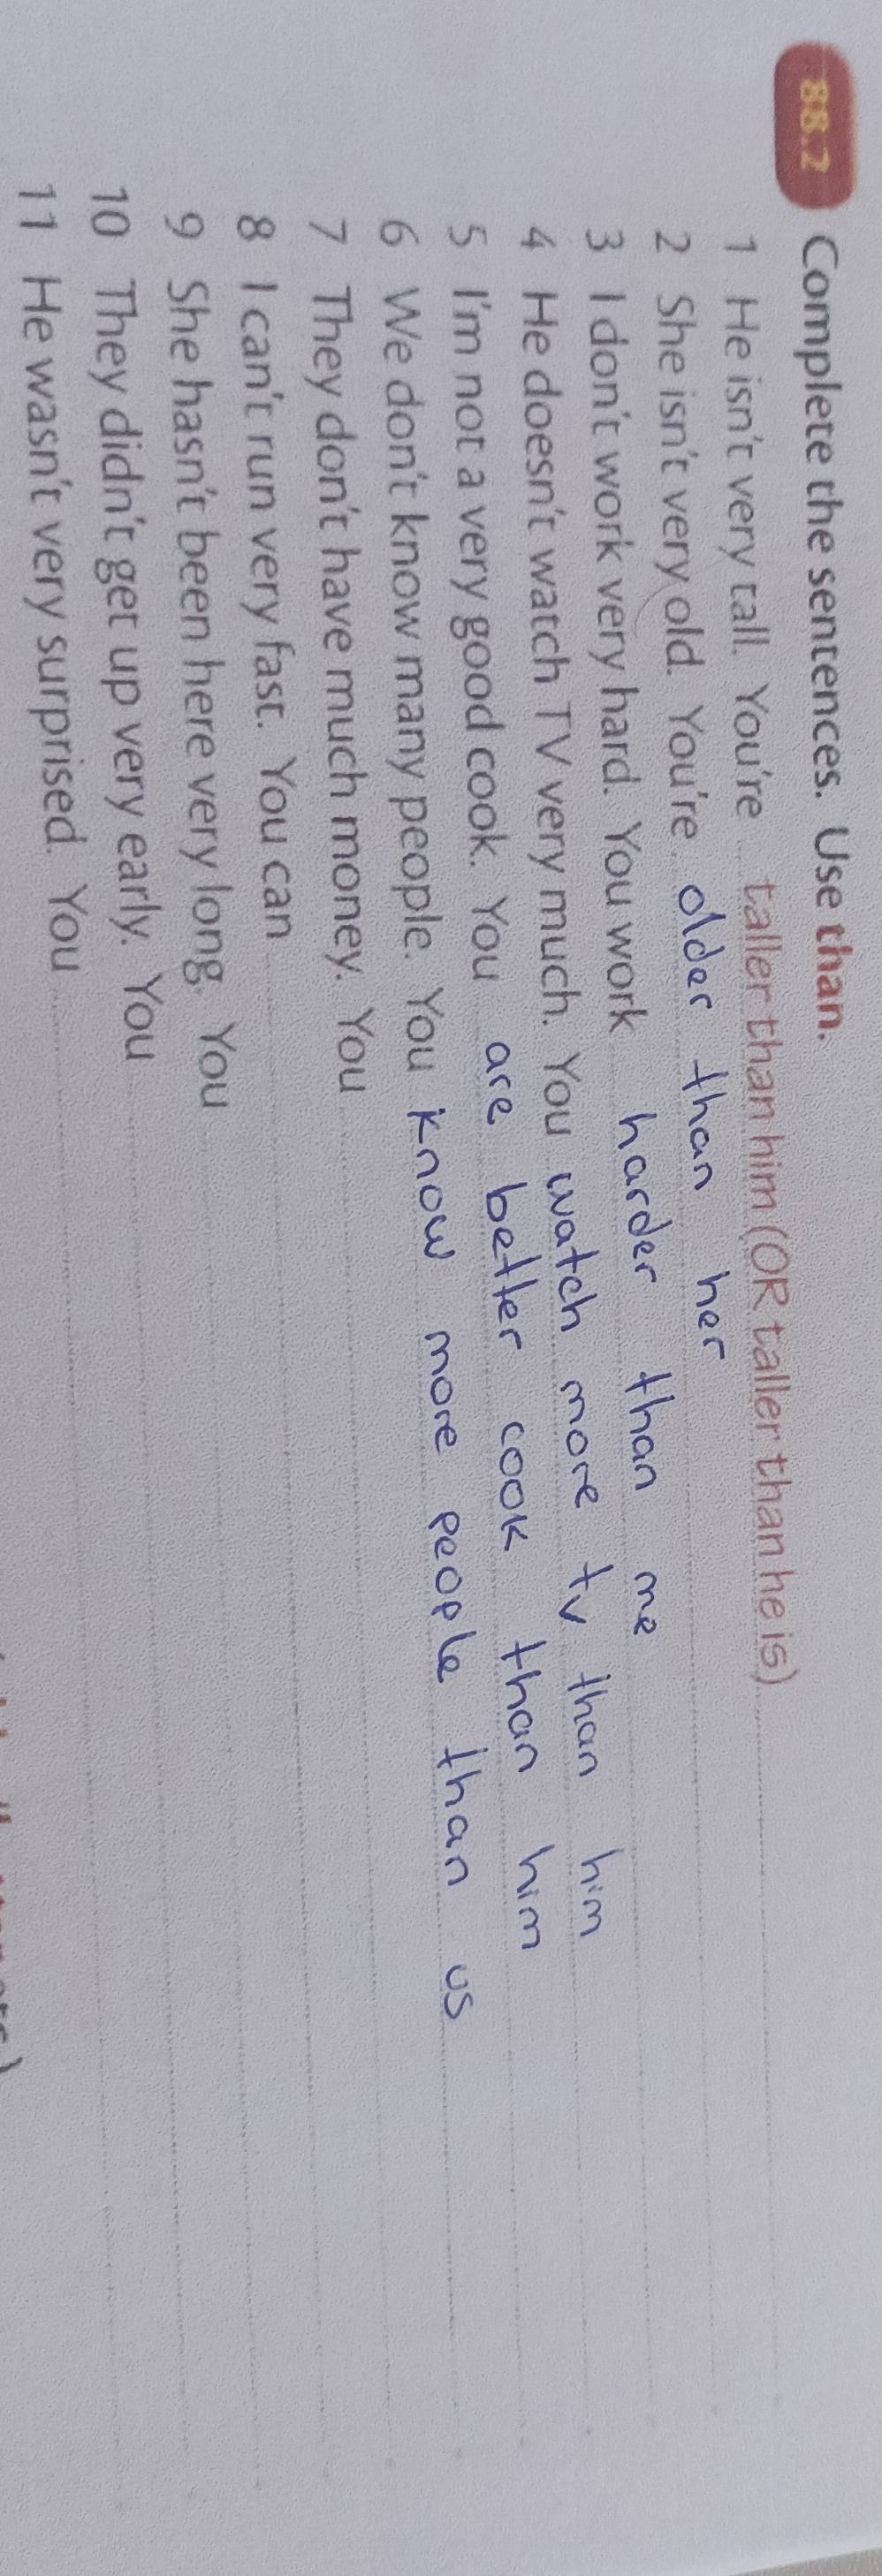 88.2 Complete the sentences. Use than.
1 He isn't very tall. You're taller than him (OR taller than he is)
2 She isn't very old. You're older than her
3 I don't work very hard. You work harder than me
4 He doesn't watch TV very much. You watch more tv than him
5 I'm not a very good cook. You are better cook than him
6 We don't know many people. You know more people than us
7 They don't have much money. You
8 I can't run very fast. You can
9 She hasn't been here very long. You
10 They didn't get up very early. You
11 He wasn't very surprised. You